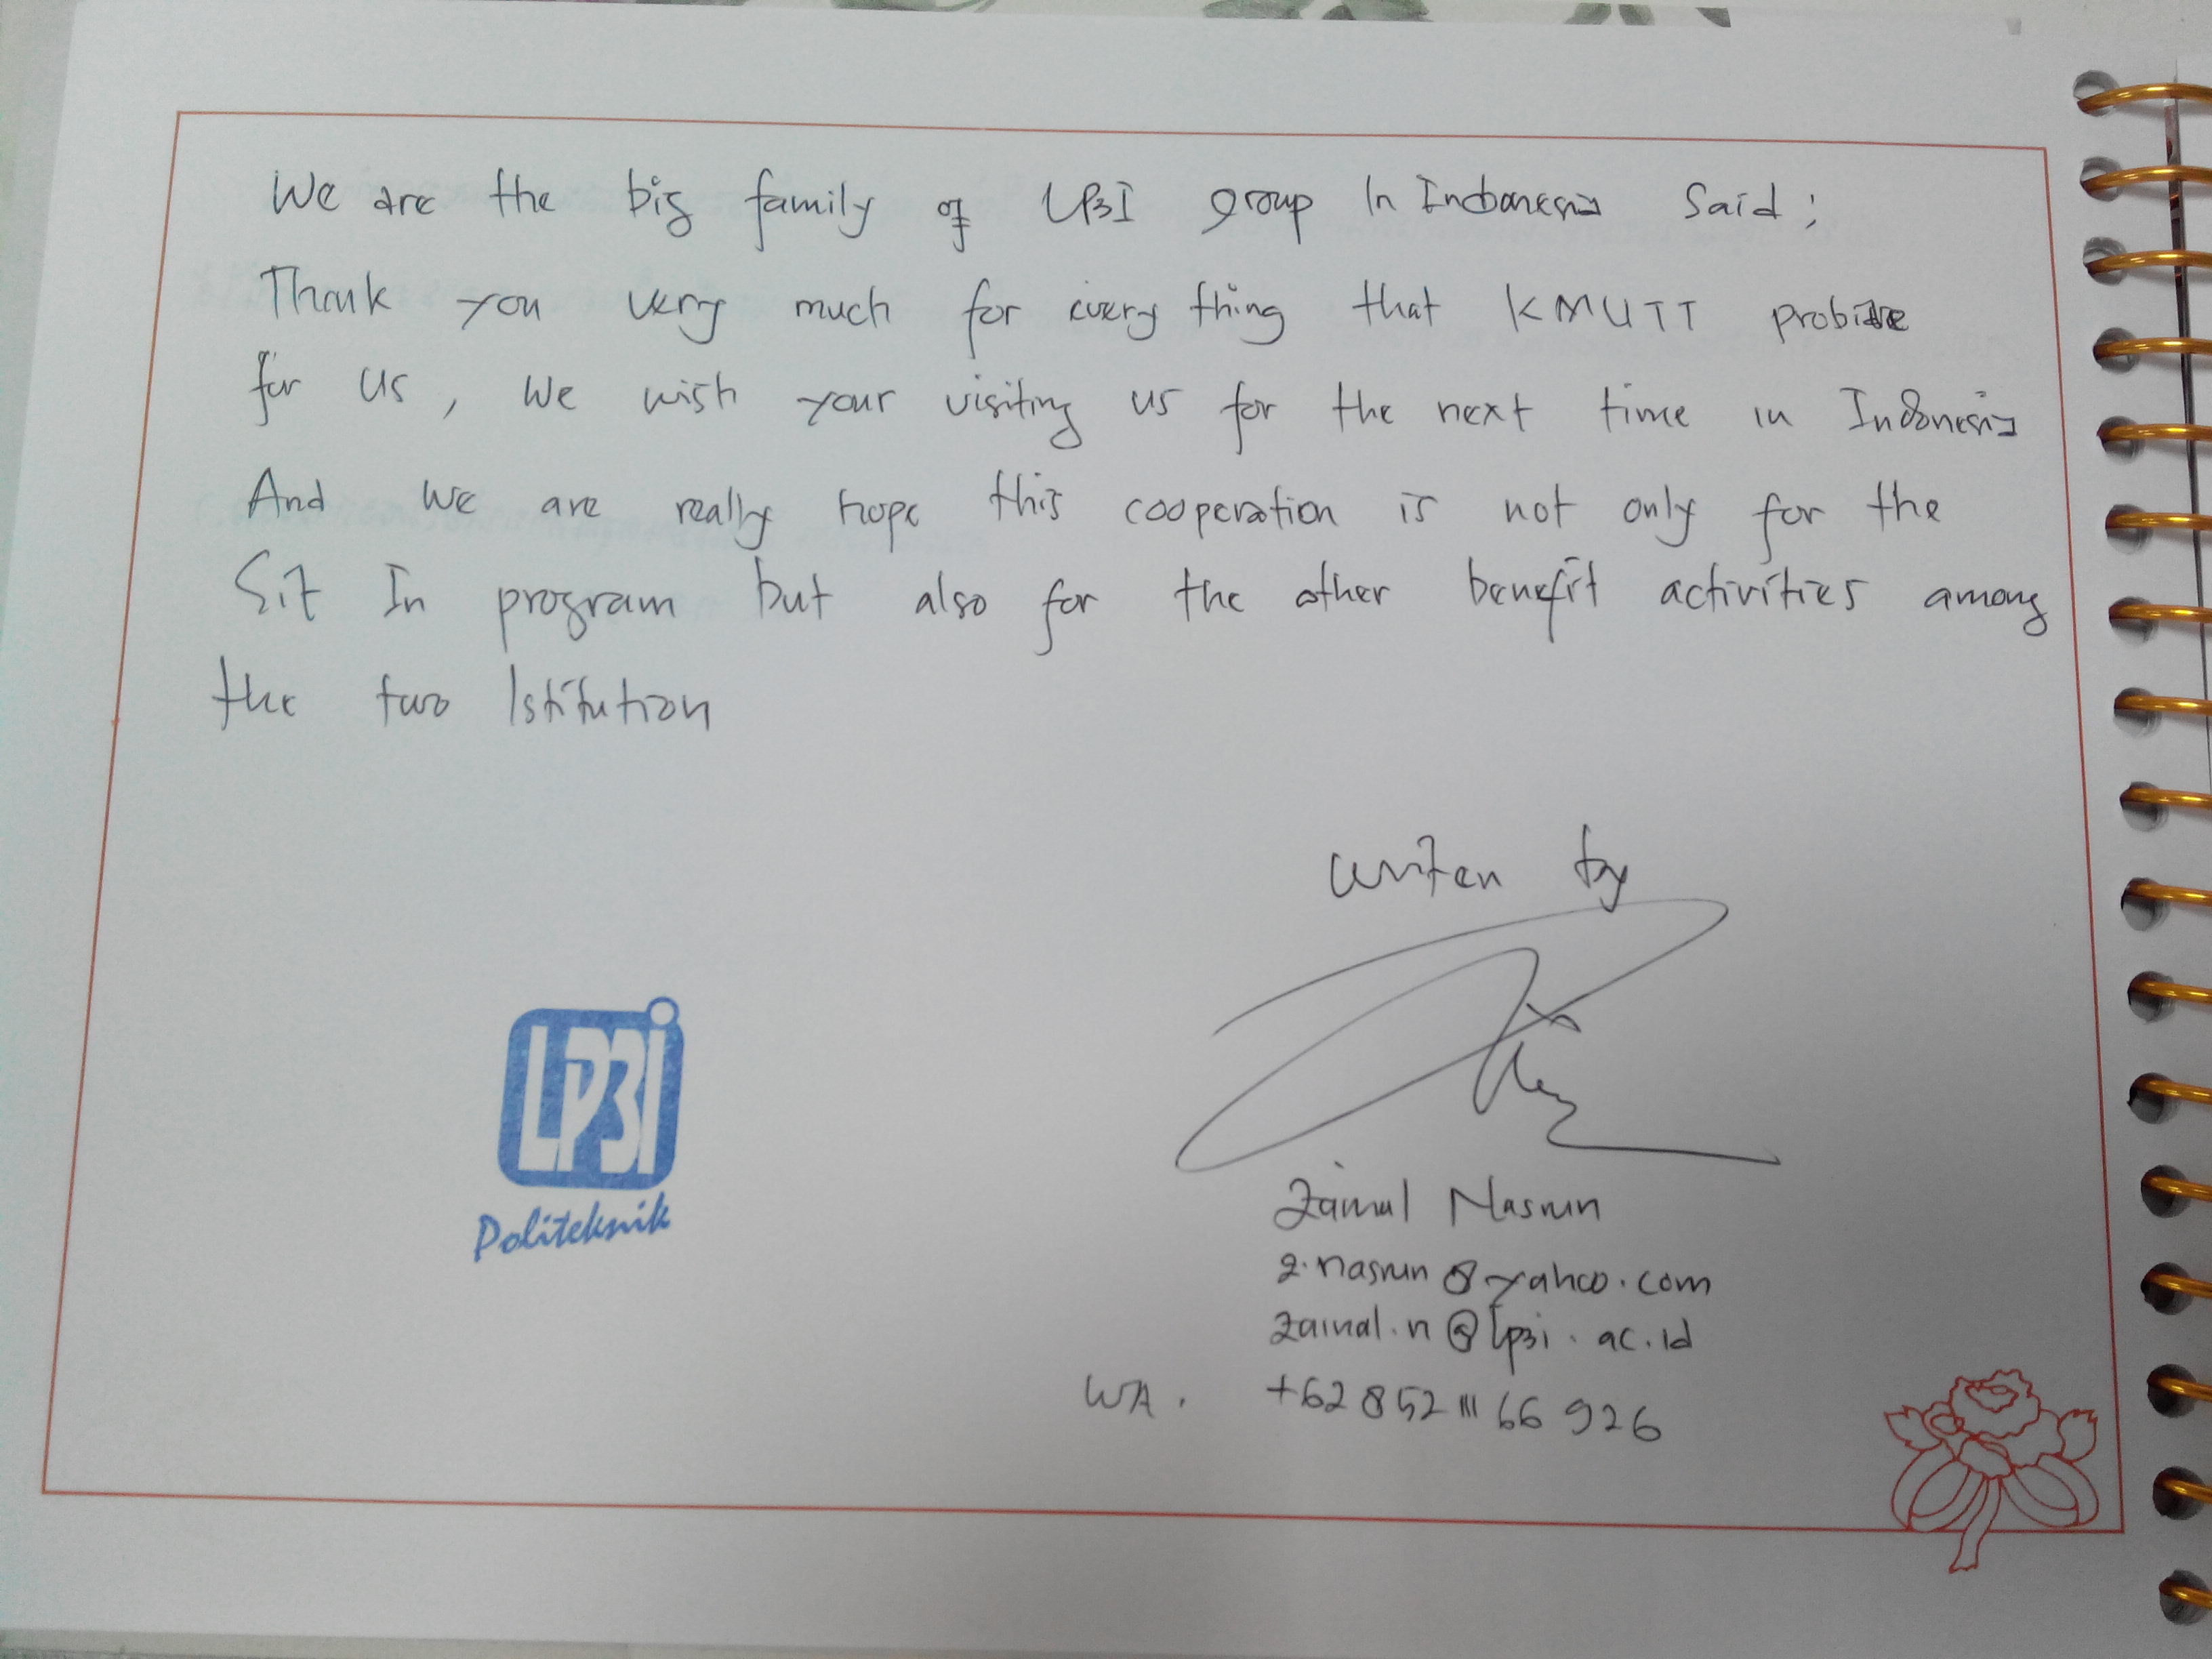 We are the big family of LP3I group In Indonesia Said ;
Thank you very much for every thing that KMUTT probide
for us , We wish your visiting us for the next time in Indonesia
And we are really hope this cooperation is not only for the
Sit In program but also for the other benefit activities among
the two Istitution
writen by
Zainal Nasrun
z.nasrun@yahoo.com
zainal.n@lp3i.ac.id
WA. +62 852 111 66 926
LP3I
Politeknik